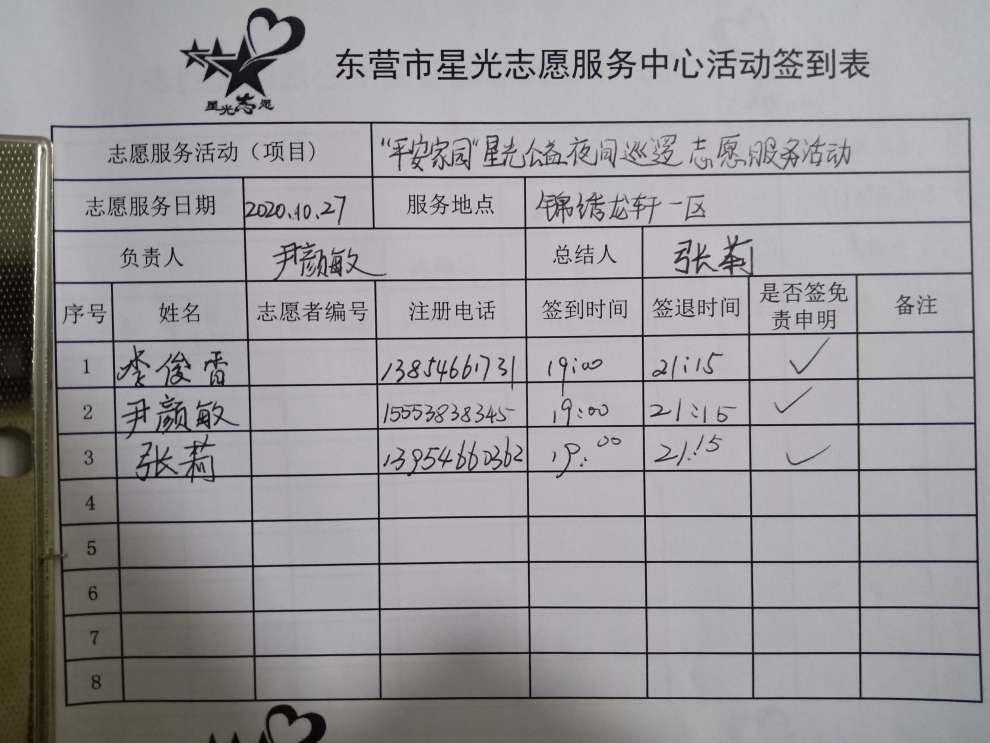 星光志愿
东营市星光志愿服务中心活动签到表
志愿服务活动（项目） “平安家园”星光公益夜间巡逻志愿服务活动
志愿服务日期 2020.10.27 服务地点 锦绣龙轩一区
负责人 尹颜敏 总结人 张莉
序号 姓名 志愿者编号 注册电话 签到时间 签退时间 是否签免 备注
责申明
1 李俊雷 13854661731 19:00 21:15 ✓
2 尹颜敏 15553838345 19:00 21:15 ✓
3 张莉 13954660362 19:00 21:15 ✓
4
5
6
7
8